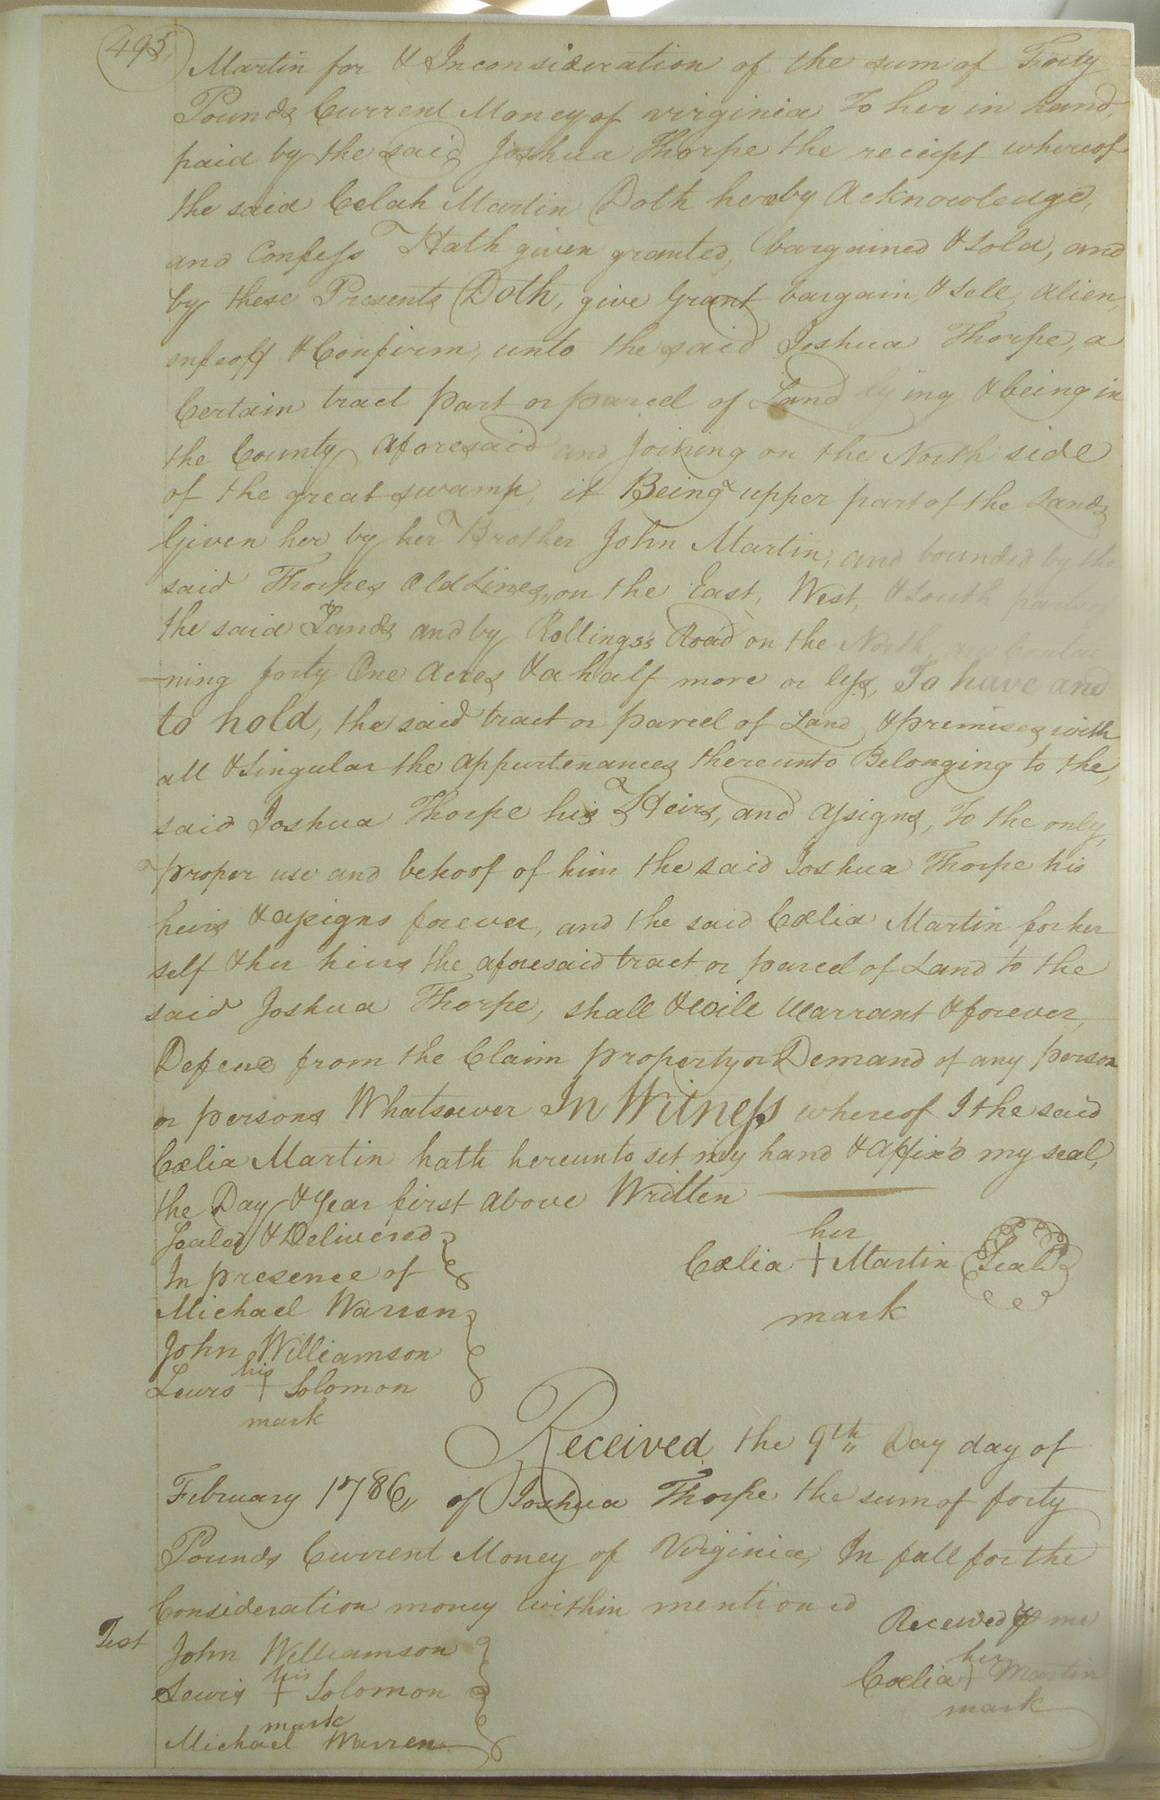 495
Martin for & Inconsideration of the sum of Forty
Pounds Current Money of virginia to her in hand,
paid by the said Joshua Thorpe the receipt whereof
the said Celah Martin Doth hereby Acknowledge,
and Confess Hath given granted, bargained & Sold, and
by these Presents Doth, give Grant bargain, & Sell, alien,
enfeoff & Confirm, unto the said Joshua Thorpe, a
Certain tract part or parcel of Land lying & being in
the County aforesaid and Joining on the North side
of the great swamp, it Being upper part of the Lands
Given her by her Brother John Martin, and bounded by the
said Thorpes Old Lines, on the East, West, & South
the said Lands and by Rollings's Road on the North,
ning forty One Acres & a half more or less, To have and
to hold, the said tract or parcel of Land & premises with
all & Singular the appurtenances thereunto Belonging to the,
said Joshua Thorpe his Heirs, and assigns, To the only,
proper use and behoof of him the said Joshua Thorpe his
heirs & assigns forever, and the said Cœlia Martin for her
self & her heirs the aforesaid tract or parcel of Land to the
said Joshua Thorpe, shall & will Warrant & forever,
Defend from the Claim property or Demand of any person
or persons Whatsoever In Witness whereof I the said
Cœlia Martin hath hereunto set my hand & affix'd my seal,
the Day & Year first above Written
Sealed & Delivered
In presence of
her
Cœlia + Martin Seal
mark
Michael Warren
John Williamson
his
Lewis + Solomon
mark
Received the 9th Day day of
February 1786 of Joshua Thorpe the sum of forty
Pounds Current Money of Virginia, In full for the
Consideration money within mentioned
Received me
her
Cœlia + Martin
mark
Test John Williamson
his
Lewis + Solomon
mark
Michael Warren